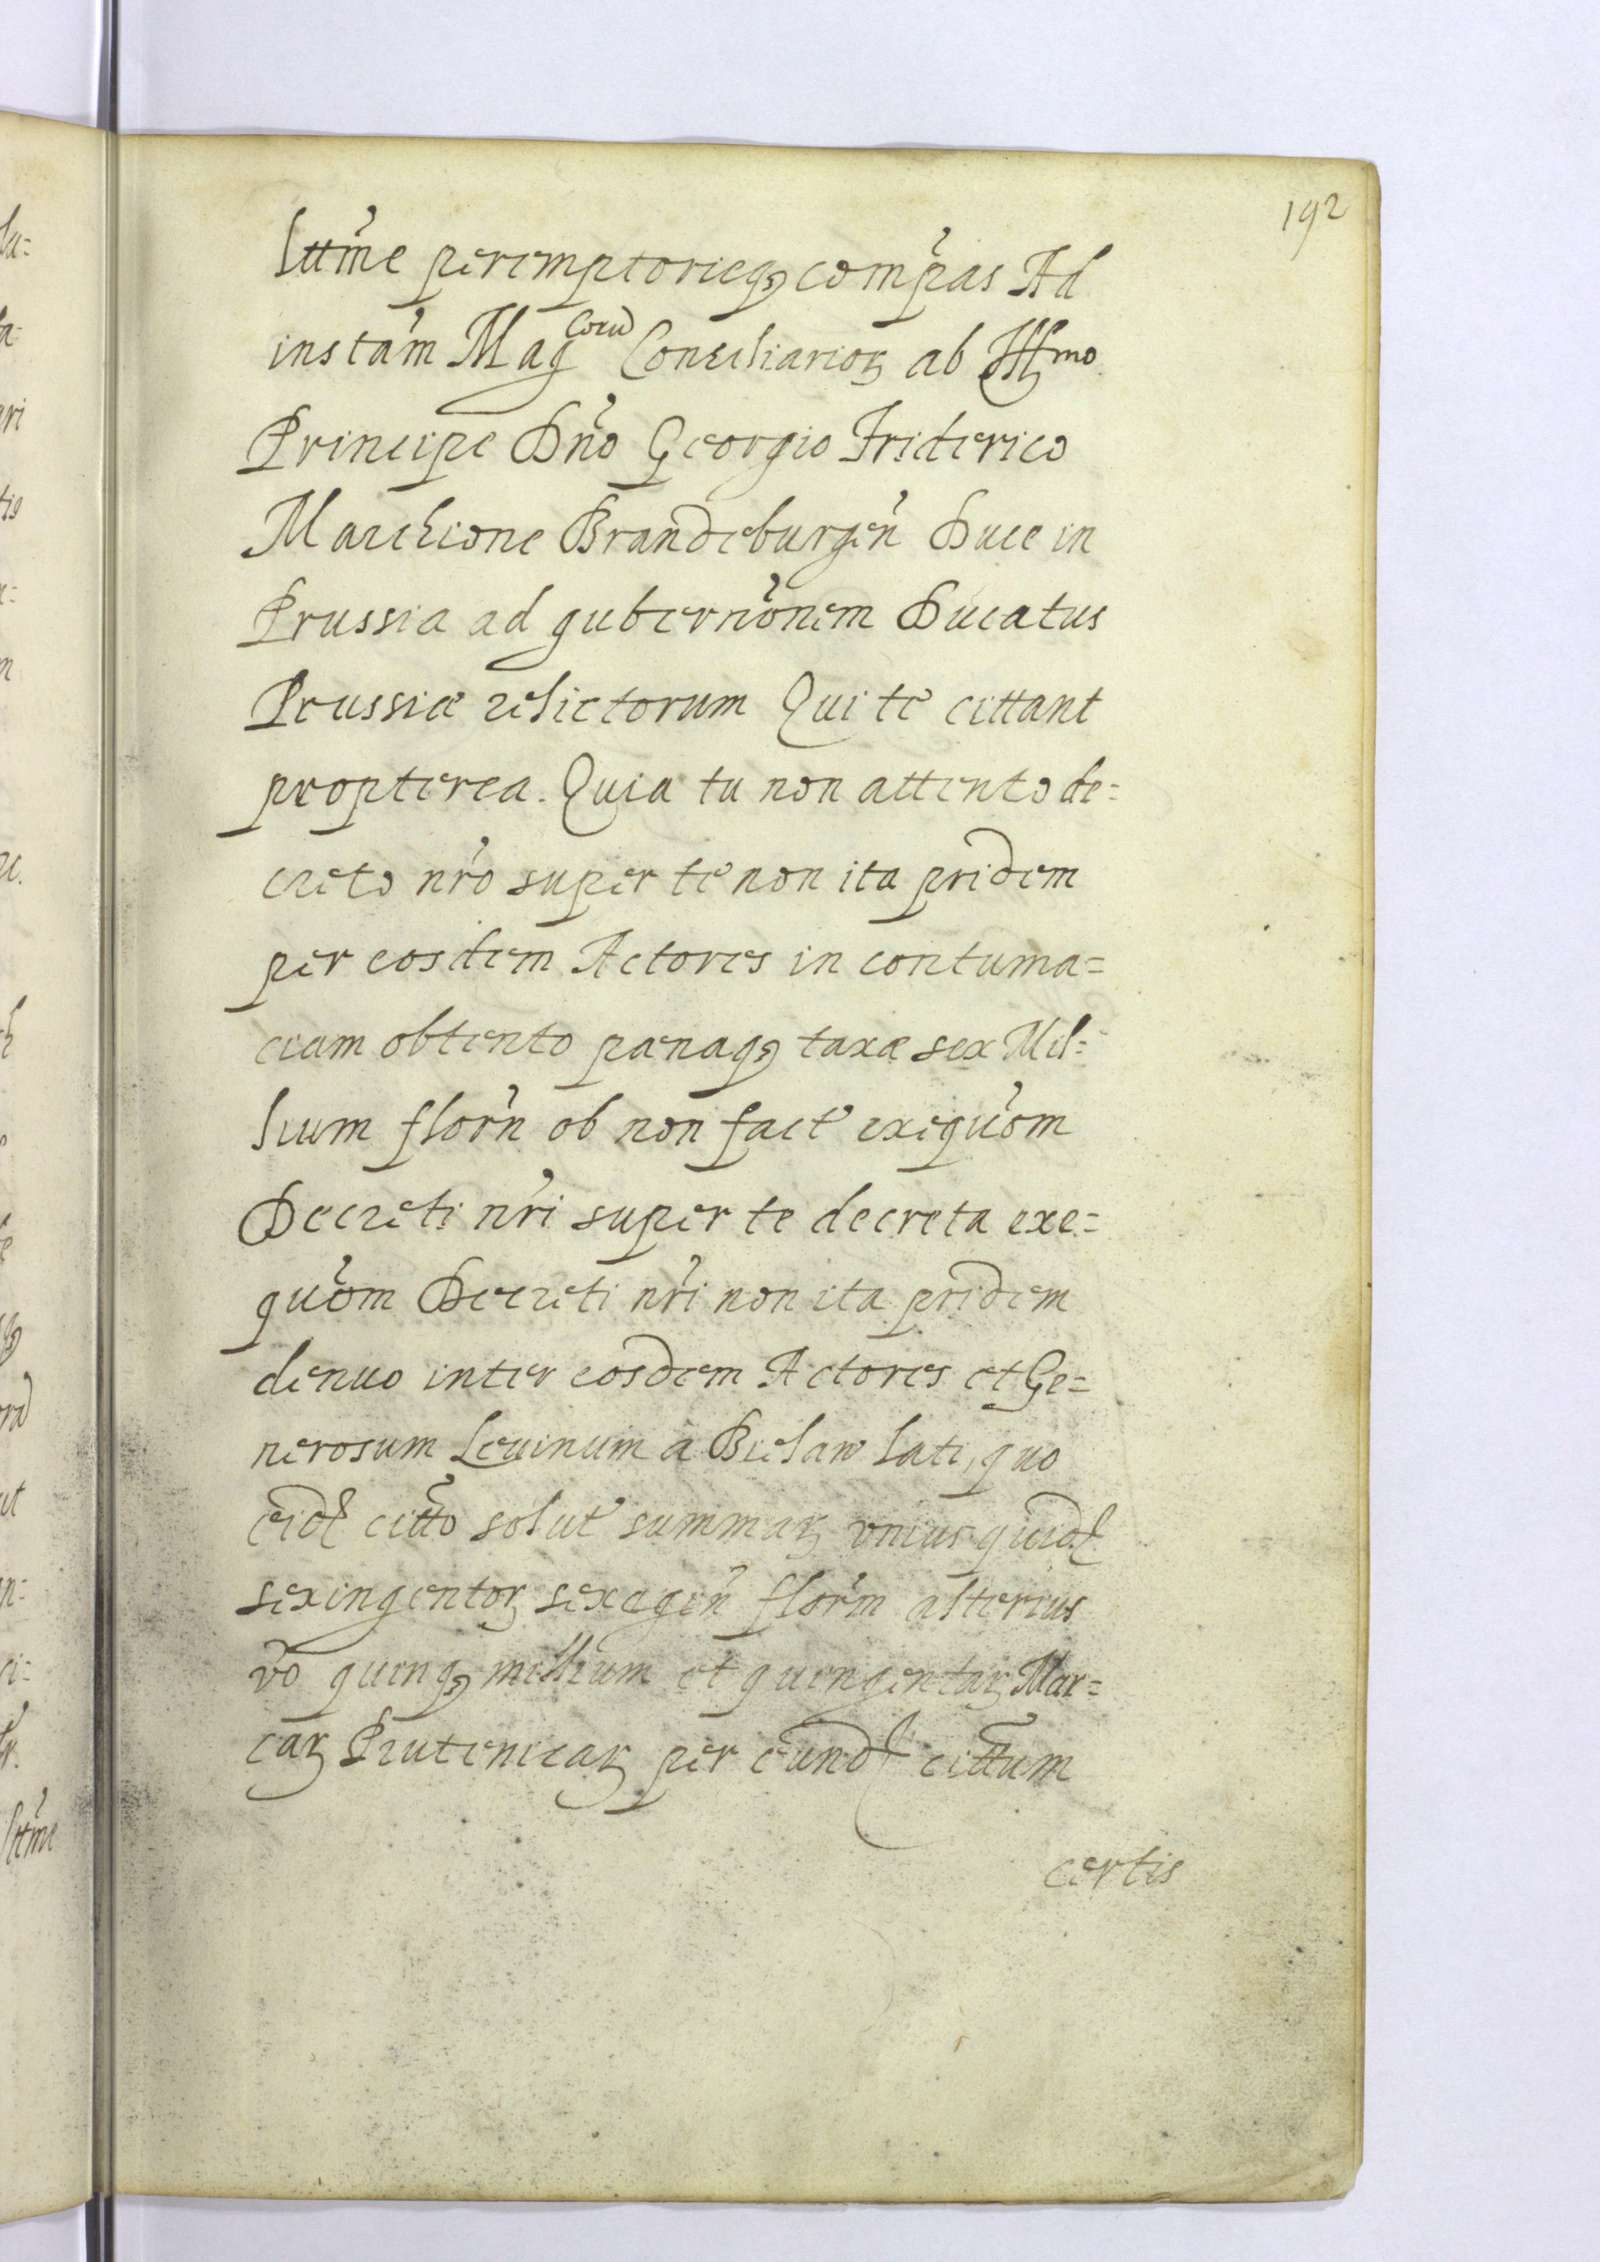 192
lttīme peremptorieqꝫ compas Ad
instām Mag^corū Consiliarioꝝ ab Ill^mo
Principe Dn̄o Georgio Friderico
Marchione Brandeburgen̄ Duce in
Prussia ad gubernōnem Ducatus
Prussiæ relictorum Qui te cittant
propterea. Quia tu non attento de=
creto nr̄o super te non ita pridem
per eosdem Actores in contuma=
ciam obtento pænaqꝫ taxæ sex Mil=
lium florn̄ ob non fact exequōm
Decreti nr̄i super te decreta exe=
quōm Decreti nr̄i non ita pridem
denuo inter eosdem Actores et Ge=
nerosum Levinum à Bielaw lati, quo
eid cittō solut summaꝝ vnius quid
sexingentoꝝ sexagen̄ florm̄ alterius
vō quinqꝫ millium et quingentaꝝ Mar=
caꝝ Prutenicaꝝ per eund cittum
certis